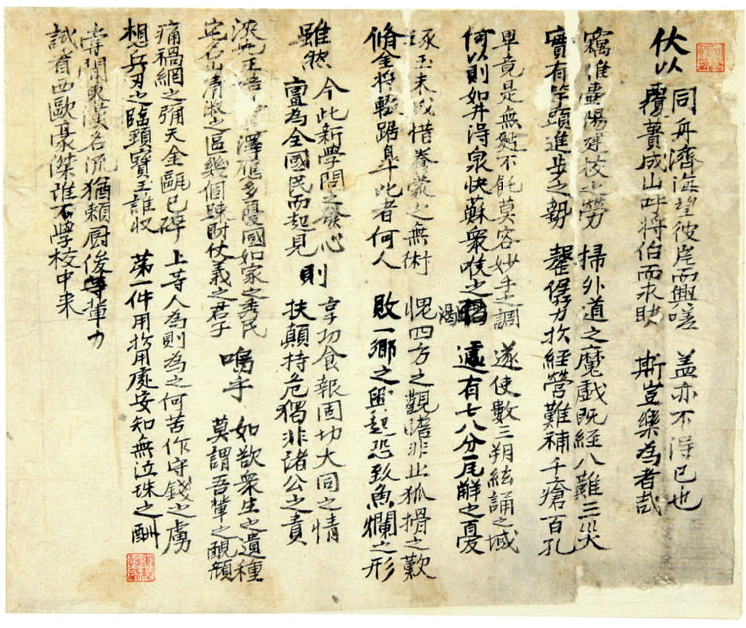 伏以
同舟濟海望彼岸而興嗟 蓋亦不得已也
覆簣成山呼將伯而求助 斯豈樂為者哉
竊惟壺陽建校之勞 掃外道之魔戲既經八難三災
實有竿頭進步之勢 罄僝力於經營難補千瘡百孔
畢竟是無麪不飥莫容妙手之調 遂使數三朔絃誦之域
何以則如井得泉快蘇衆咬之渴 遽有七八分瓦解之憂
琢玉未成惜眷蒙之無術 愧四方之觀瞻非止狐搰之歎
脩金將輟踞皋比者何人 敗一鄉之興起恐致魚爛之形
雖然
今此新學問之發心 享功食報固切大同之情
亶為全國民而起見 則 扶顛持危獨非諸公之責
澤應多憂國如家之秀民 如欲衆生之遺種
山清淑之區幾個疎財仗義之君子 嗚乎 莫謂吾輩之靦顏
痛禍網之彌天金甌已碎 上等人為則為之何苦作守錢之虜
想兵刃之臨頸寶玉誰收 第一件用於用處安知無泣珠之酬
嘗聞東漢名流猶賴厨俊等輩力
試看西歐豪傑誰不學校中来